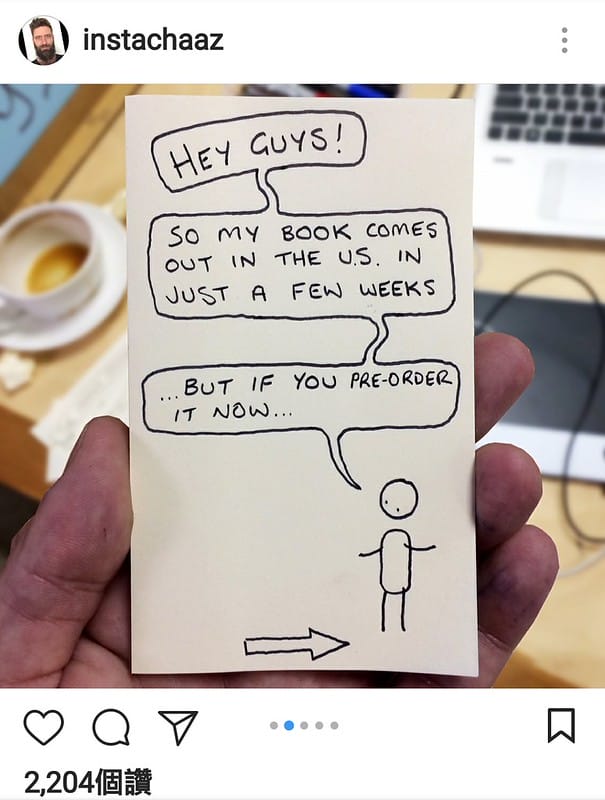 instachaaz
HEY GUYS!
SO MY BOOK COMES
OUT IN THE U.S. IN
JUST A FEW WEEKS
...BUT IF YOU PRE-ORDER
IT NOW...
2,204個讚